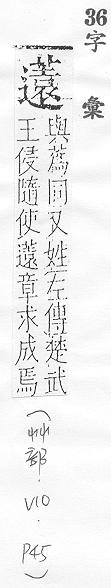 36字 彙
薳
與蔿同又姓左傳楚武
王侵隨使薳章求成焉
(艸部.V10.P45)